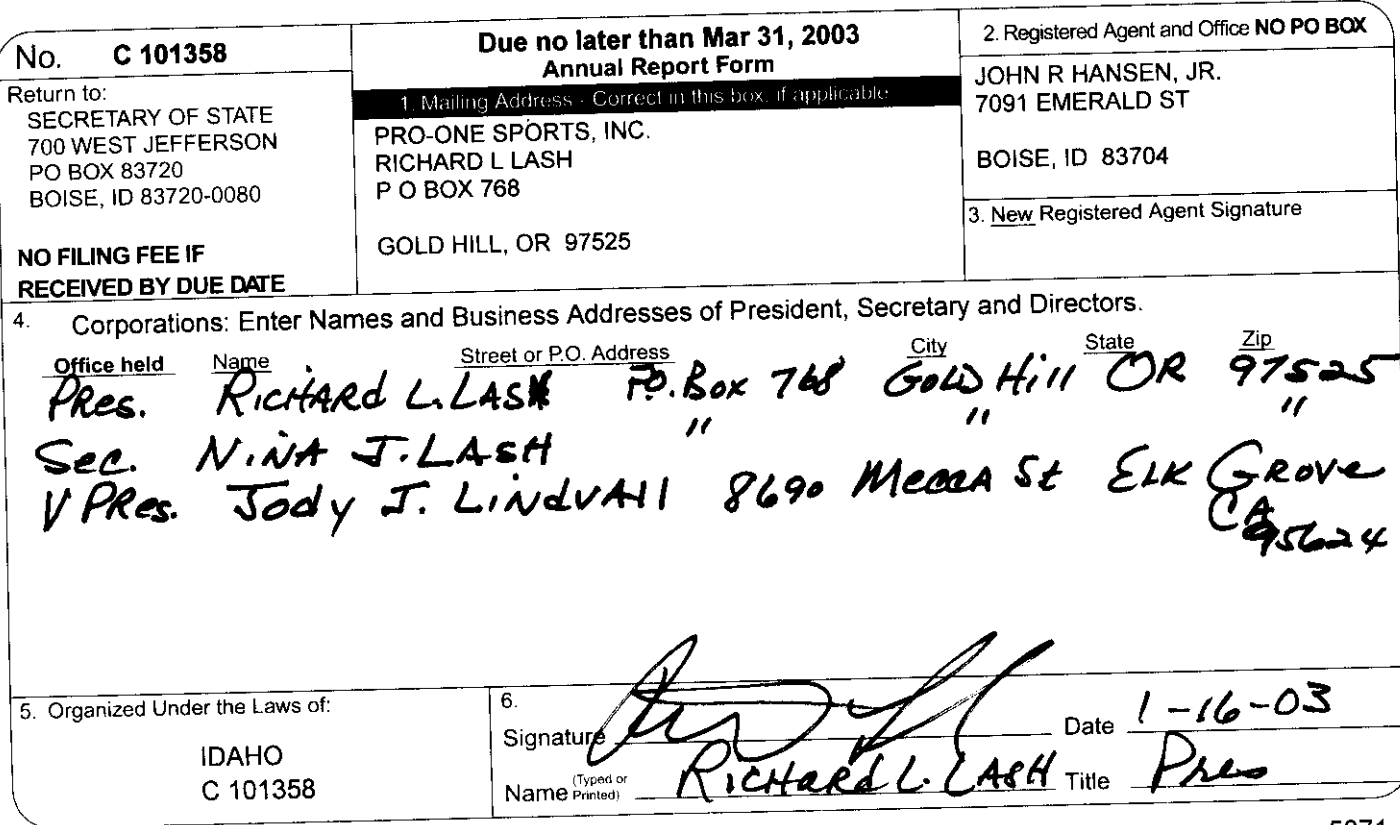 No. C 101358
Return to:
SECRETARY OF STATE
700 WEST JEFFERSON
PO BOX 83720
BOISE, ID 83720-0080
NO FILING FEE IF
RECEIVED BY DUE DATE
Due no later than Mar 31, 2003
Annual Report Form
1. Mailing Address - Correct in this box, if applicable
PRO-ONE SPORTS, INC.
RICHARD L LASH
P O BOX 768
GOLD HILL, OR 97525
2. Registered Agent and Office NO PO BOX
JOHN R HANSEN, JR.
7091 EMERALD ST
BOISE, ID 83704
3. New Registered Agent Signature
4. Corporations: Enter Names and Business Addresses of President, Secretary and Directors.
Office held Name Street or P.O. Address City State Zip
PRes. RICHARd L. LASH P.O. Box 768 GOLD Hill OR 97525
Sec. NINA J. LASH " " "
V PRes. Jody J. LINdVAll 8690 MeccA St ELK GROVe
CA
95624
5. Organized Under the Laws of:
IDAHO
C 101358
6.
Signature Date 1-16-03
Name (Typed or Printed) RICHARd L. LASH Title Pres